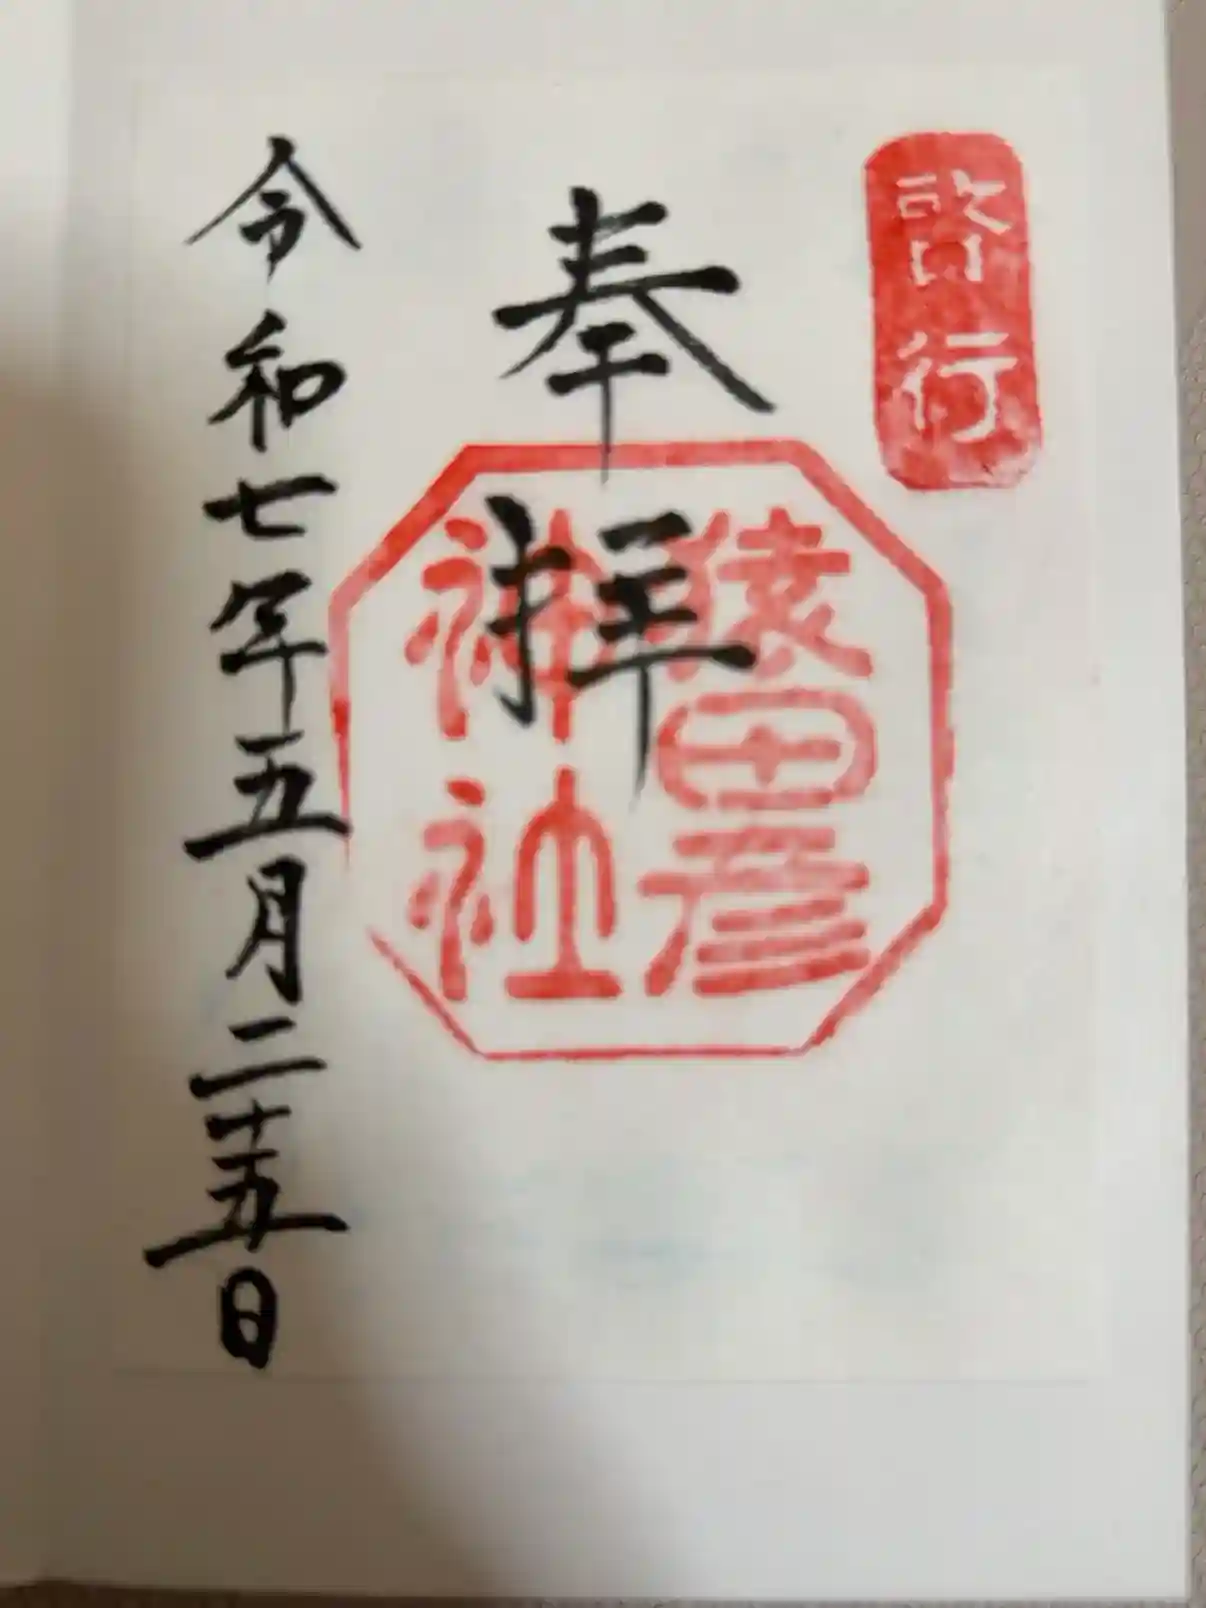 啓行
奉拝
猿田彦
神社
令和七年五月二十五日